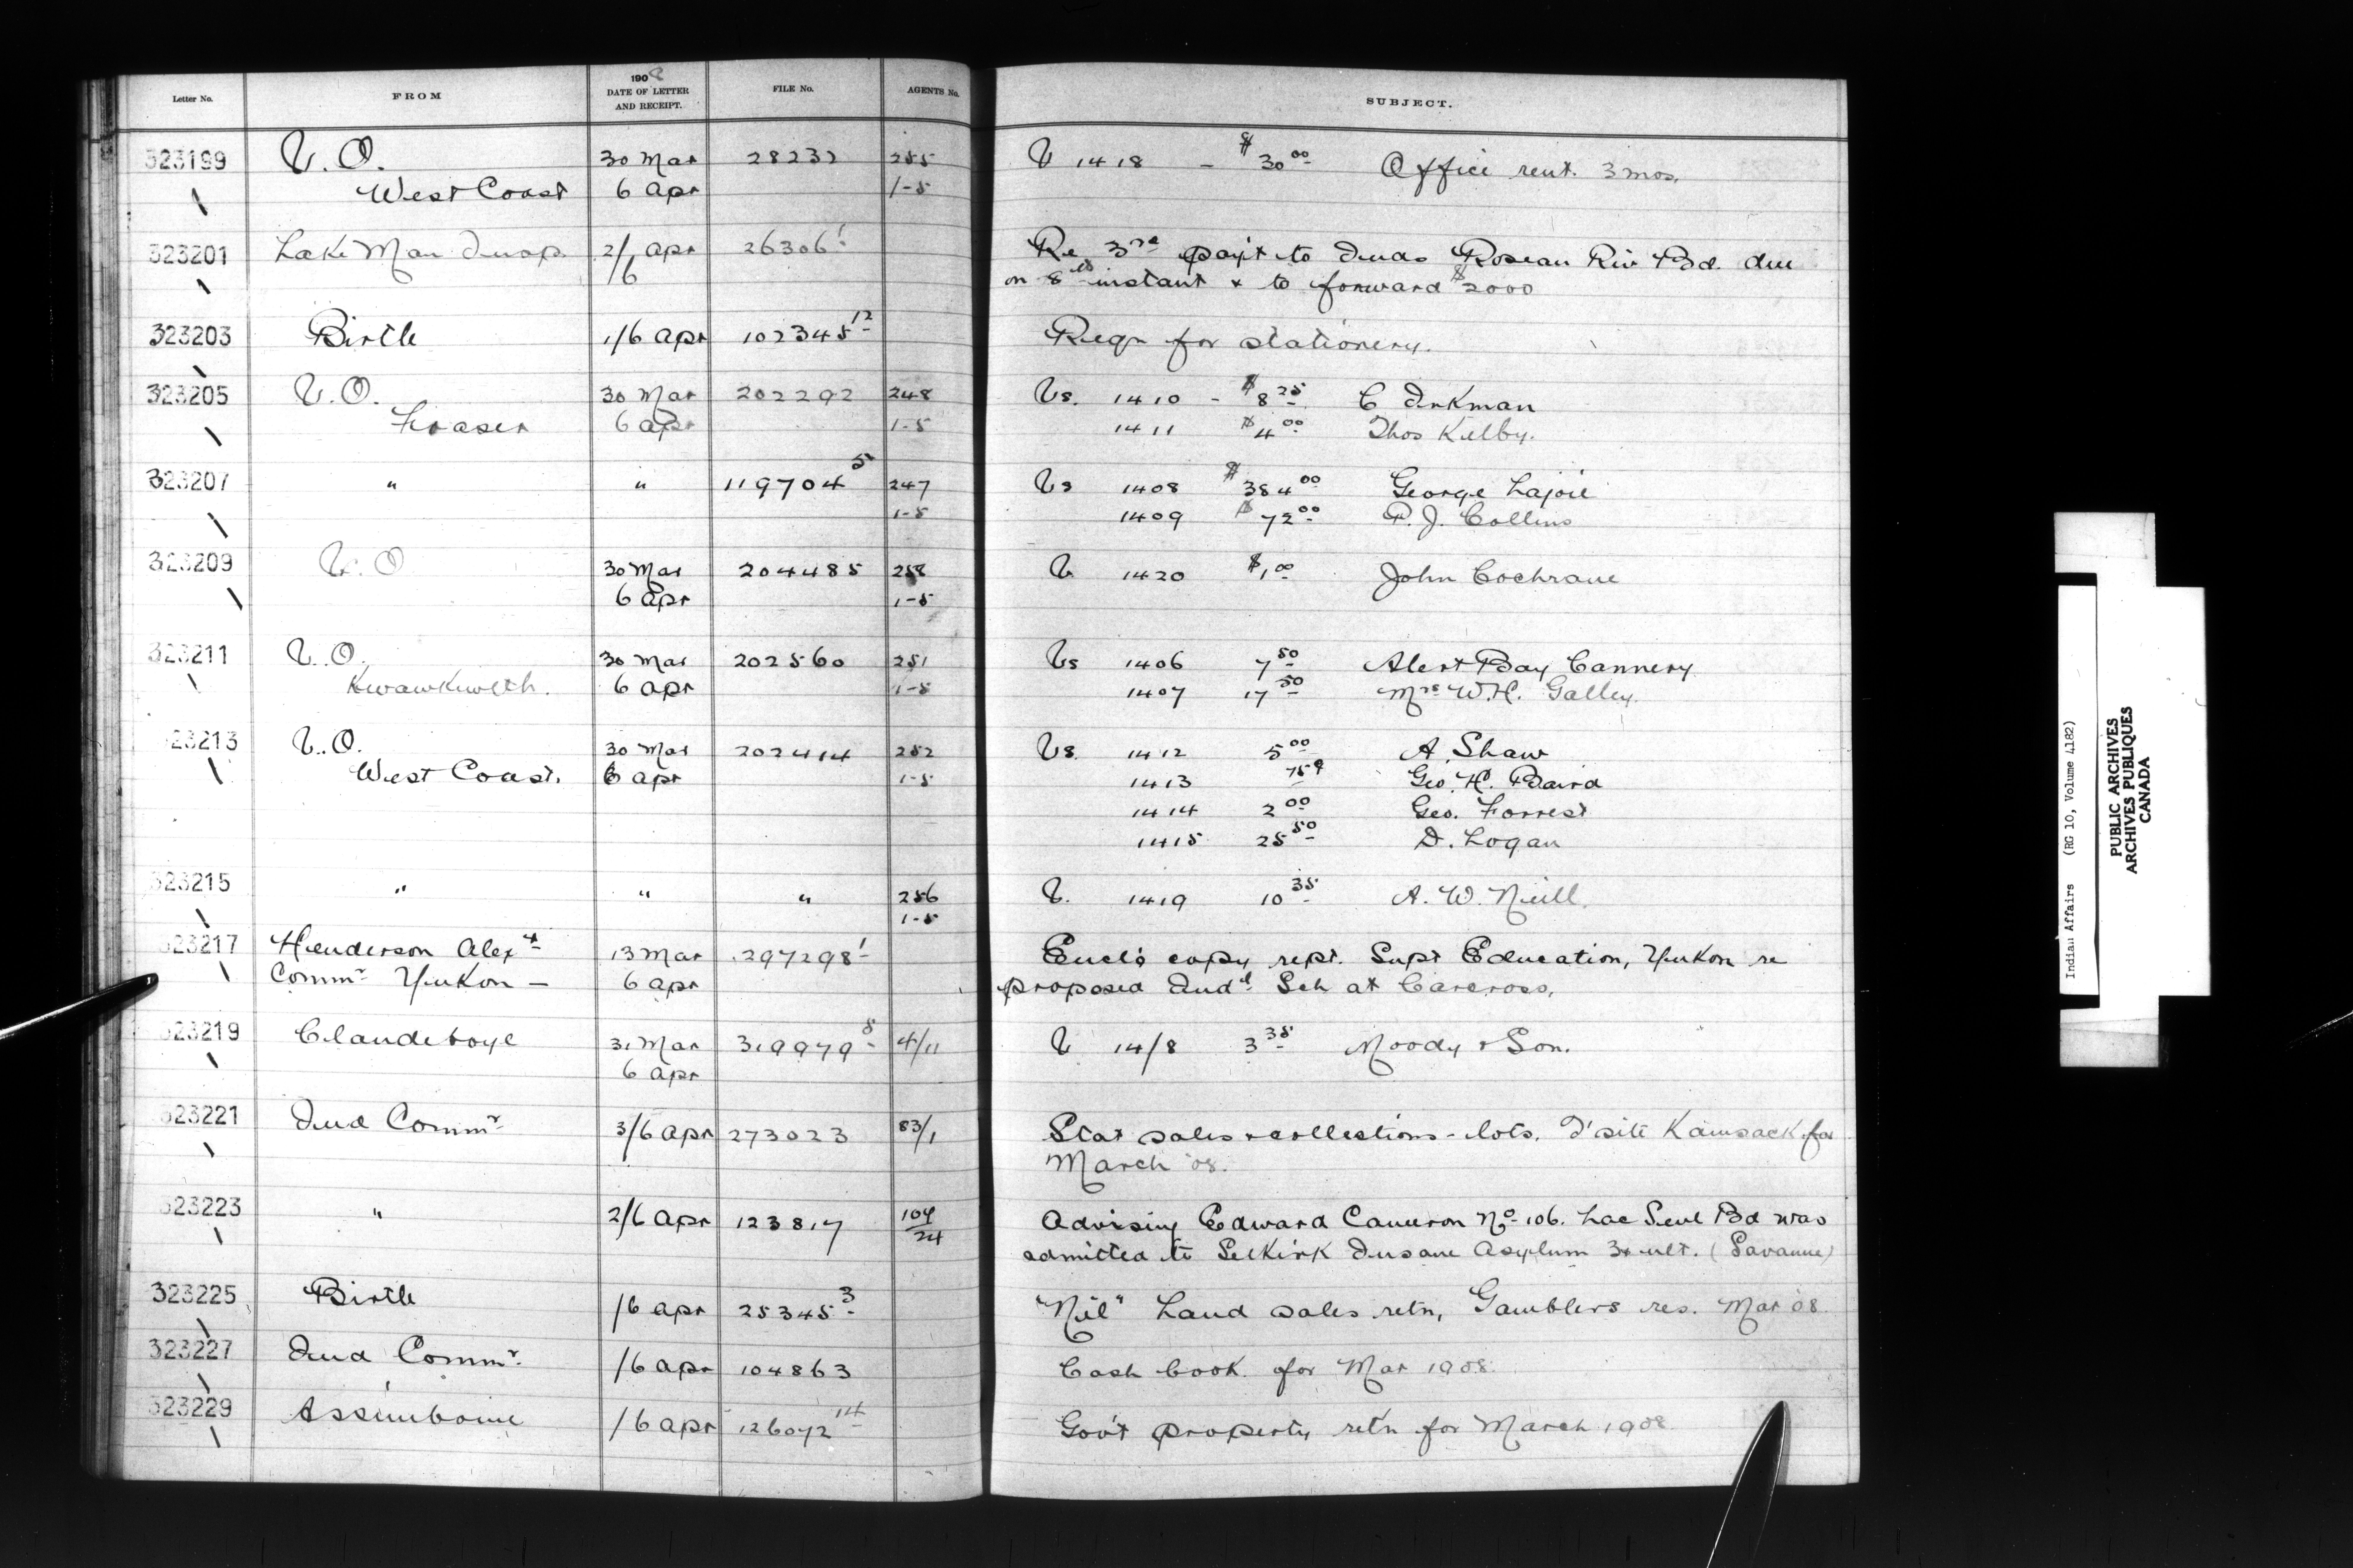 Letter No. FROM 1908 DATE OF LETTER AND RECEIPT. FILE No. AGENTS No. SUBJECT.
323199 V. O. 30 Mar 28232 255 V 1418 - $30.00 Office rent. 3 mos.
West Coast 6 Apr 1-5
323201 Lake Man Insp. 2/6 Apr 26306-1 Re 3rd pay't to Inds Roseau Riv Bd. due
on 8th instant & to forward $2000
323203 Birtle 1/6 Apr 102345-12 Reqn for stationery.
323205 V. O. 30 Mar 202292 248 Vs. 1410 - $8.25 C Dirkman
Fraser 6 Apr 1-5 1411 $4.00 Thos Kelby.
323207 " " 119704-5 247 Vs 1408 $384.00 George Lajoie
1-5 1409 $72.00 P. J. Collins
323209 V. O 30 Mar 204485 258 V. 1420 $1.00 John Cochrane
6 Apr 1-5
323211 V. O. 30 Mar 202560 251 Vs 1406 7.50 Alert Bay Cannery
Kwawkwelth. 6 Apr 1-5 1407 17.50 Mrs W.H. Galley.
323213 V. O. 30 Mar 202414 252 Vs. 1412 5.00 A. Shaw
West Coast. 6 Apr 1-5 1413 75¢ Geo. H. Baird
1414 2.00 Geo. Forrest
1415 25.50 D. Logan
323215 " " " 256 V. 1419 10.35 A. W. Neill.
1-5
323217 Henderson Alexr 13 Mar 297298-1 Encl'g copy rept. Supt Education, Yukon re
Commr Yukon - 6 Apr proposed Indn Sch at Carcross.
323219 Clandeboye 31 Mar 319979-8 4/11 V 14/8 3.35 Moody & Son.
6 Apr
323221 Ind Commr 3/6 Apr 273023 83/1 Stat sales & collections - lots. T'site Kamsack for
March '08.
323223 " 2/6 Apr 123817 104/24 Advising Edward Cameron No 106. Lac Seul Bd was
admitted to Selkirk Insane Asylum 31 ult. (Savanne)
323225 Birtle /6 Apr 25345-3 "Nil" Land sales retn, Gamblers res. Mar '08.
323227 Ind Commr. /6 Apr 104863 Cash book for Mar 1908.
323229 Assiniboine /6 Apr 126072-14 Gov't property ret'n for March 1908.
Indian Affairs (RG 10, Volume 4182)
PUBLIC ARCHIVES
ARCHIVES PUBLIQUES
CANADA